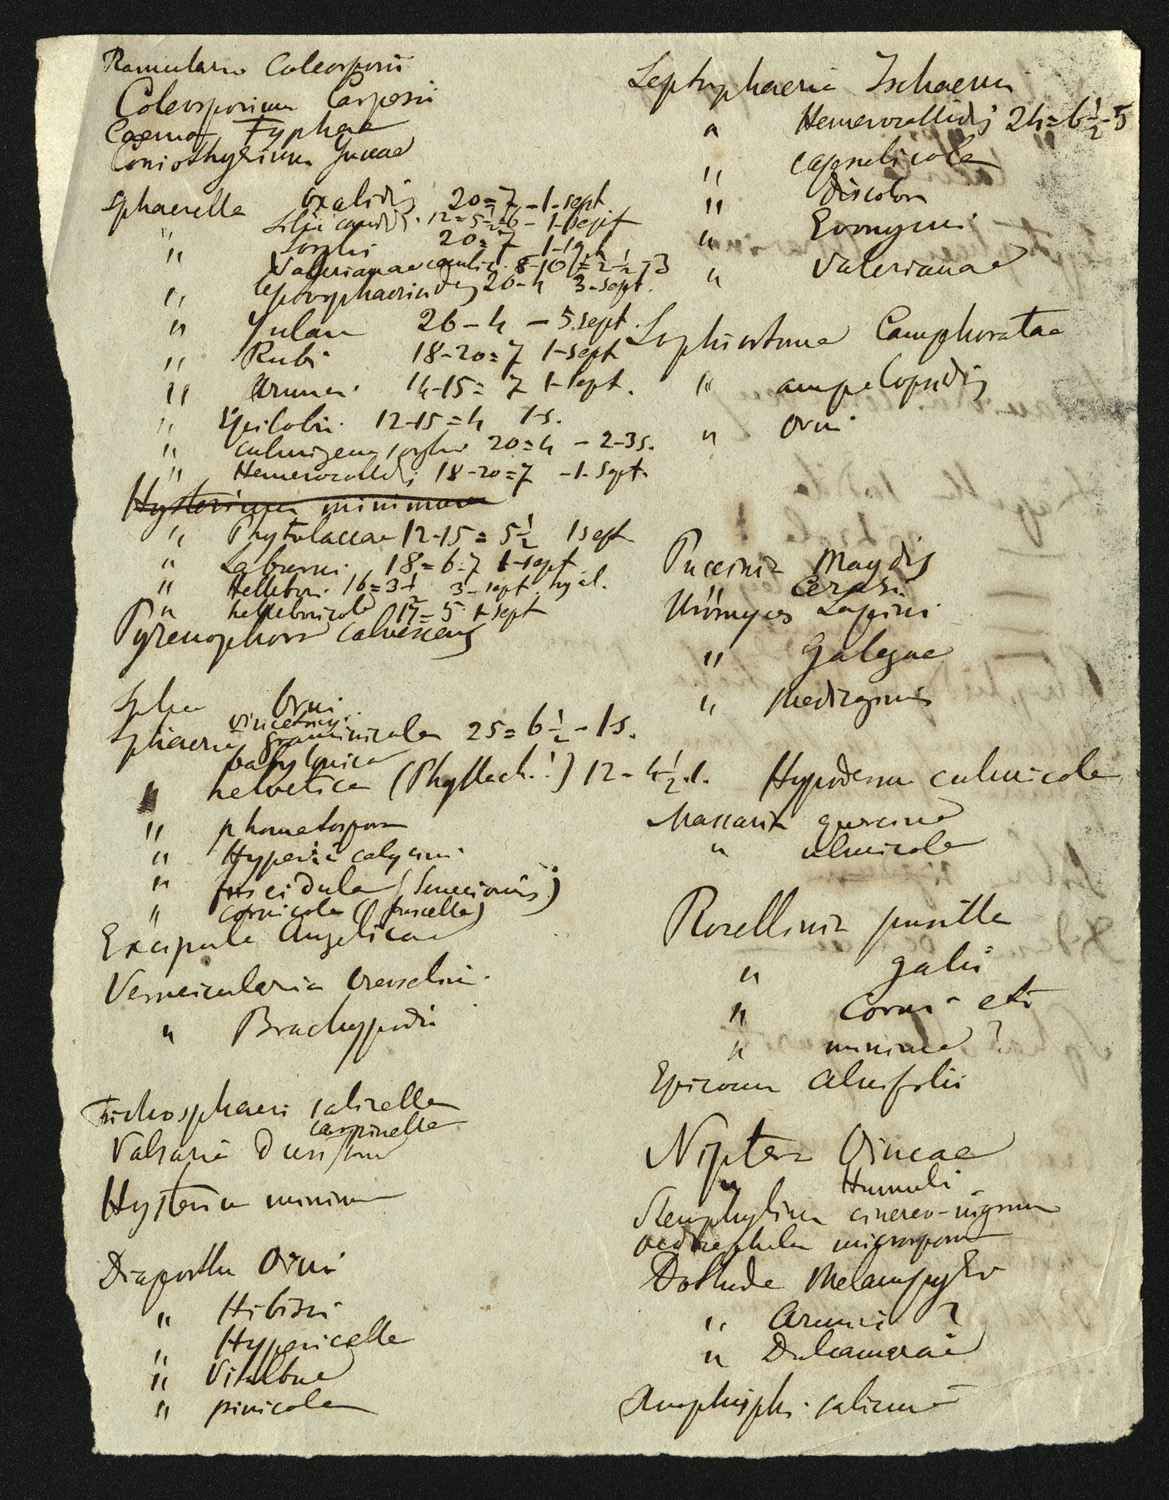 Ramularia Coleosporii
Coleosporium Carpesii
Caeoma Typhae
Coniothyrium Juccae
Sphaerella Oxalidis 20=7 - 1-sept
" Lilii candidi. 12=5½-6 - 1-sept
Sorghi 20=7 1-sept
" Valerianae 8-10=2-2½-3
leptosphaerioides 20-4 3-sept.
" Julan 26-4 - 5.sept.
" Rubi 18-20=7 1-sept
" Arunci 14-15=7 1-sept.
" Epilobii. 12-15=4 1-s.
" culmigena sorghi 20=4 - 2-3s.
" Hemerocallidis 18-20=7 -1-sept.
Hysterium minimum
" Phytolaccae 12-15=5½ 1sept
" Laburni. 18=6-7 1-sept
" Hellebori. 16=3½ 3-sept hyal.
" helleboricola 17=5 1-sept
Pyrenophora calvescens
Sphae Orni
vincetoxici
Sphaeria graminicola 25=6½-1s.
babylonica
" helvetica (Phyllach.!) 12-4½.
" phomatospora
" Hyperici calycini
" fuscidula (Senecionis)
" cornicola (fuscella)
Excipula Angelicae
Vermicularia
" Brachypodii
Trichosphaeri salicella
carpinella
Valsaria
Hysterium minimum
Diaporthe Orni
" Hibisci
" Hypericella
" Vitalbae
" pinicola
Leptosphaeria Ischaemi
" Hemerocallidis 24=6½-5
" capsulicola
" Discolor
" Evonymi
" Valerianae
Lophiostoma Camphoratae
" ampelopsidis
" Orni
Puccinia Maydis
" Cerasi
Uromyces Lupini
" Galegae
" Medicaginis
Hypoderma culmicola
Massaria quercina
" ulmicola
Rosellinia pusilla
" galii
" Corni - etc
" minima ?
Epicoccum Alnifolii
Niptera Vincae
" Humuli
Stemphylium cinereo-nigrum
microspora
Dothidea Melampyri
" Arunci ?
" Dulcamarae
Amphisph. salicina